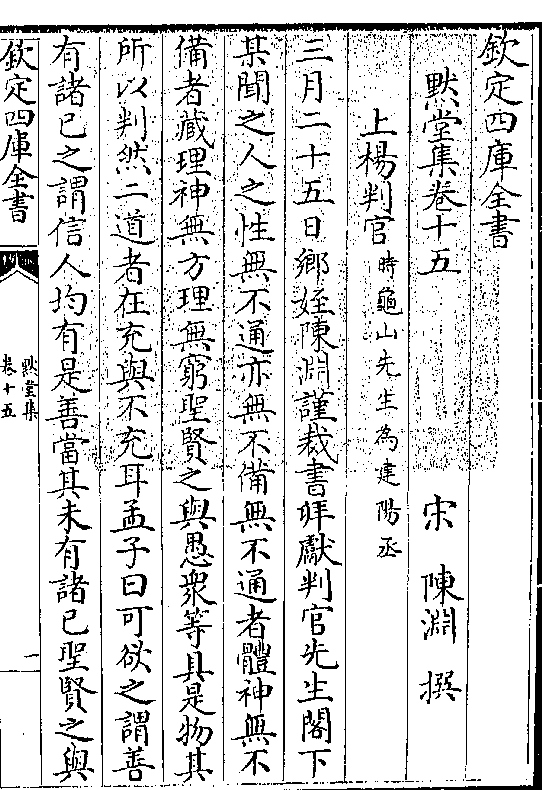 欽定四庫全書
黙堂集卷十五
宋 陳淵 撰
上楊判官時龜山先生為建陽丞
三月二十五日鄉姪陳淵謹裁書拜獻判官先生閣下
某聞之人之性無不通亦無不備無不通者體神無不
備者藏理神無方理無窮聖賢之與愚衆等具是物其
所以判然二道者在充與不充耳孟子曰可欲之謂善
有諸己之謂信人均有是善當其未有諸己聖賢之與
欽定四庫全書
黙堂集
卷十五
一